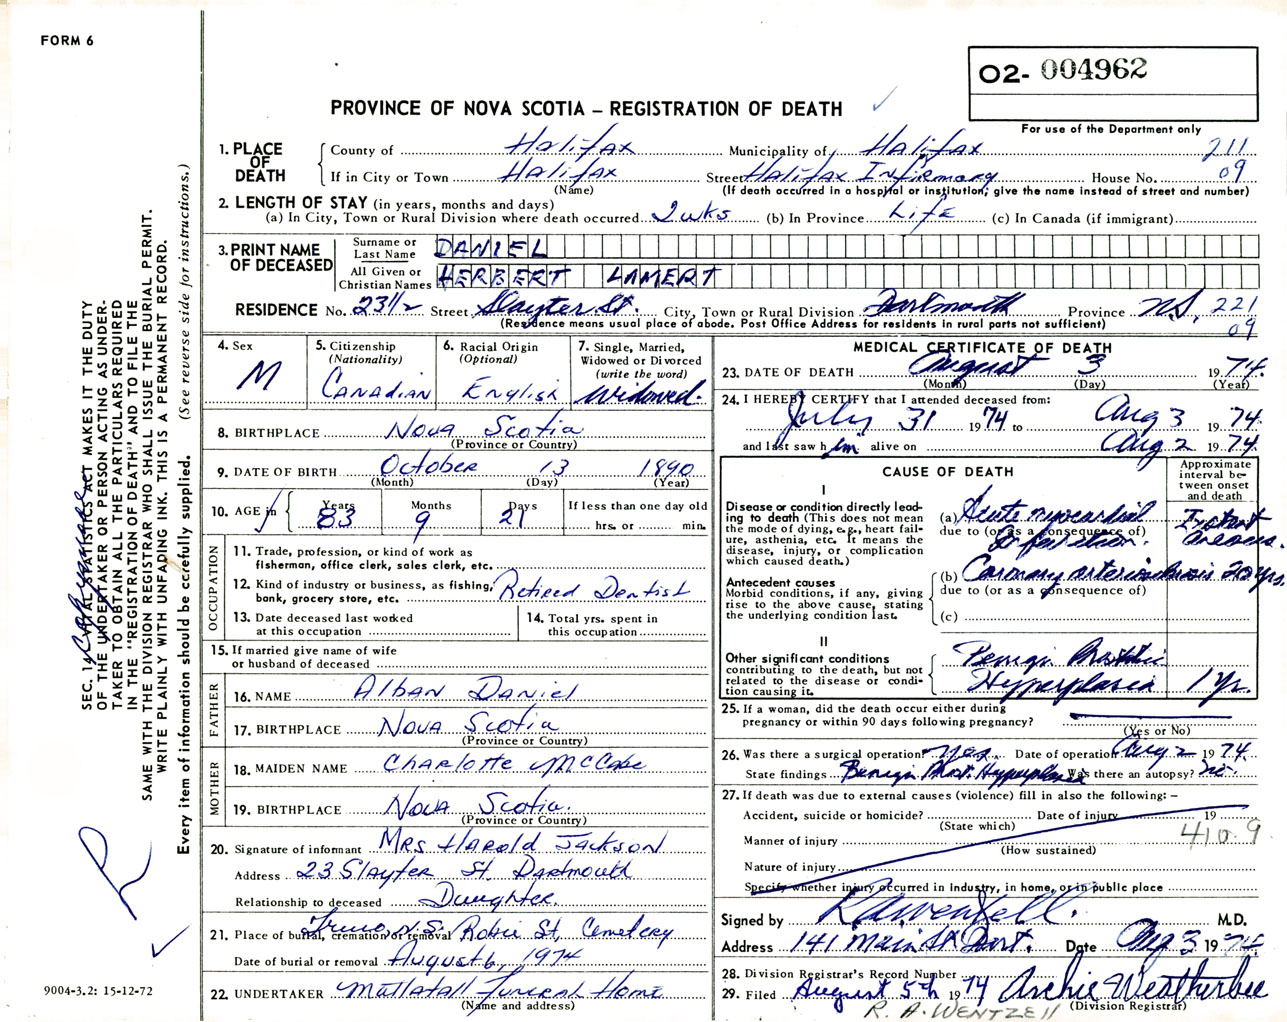 FORM 6
O2- 004962
PROVINCE OF NOVA SCOTIA – REGISTRATION OF DEATH
For use of the Department only
1. PLACE OF DEATH
County of Halifax Municipality of Halifax 211
If in City or Town Halifax Street Halifax Infirmary House No. 09
(Name) (If death occurred in a hospital or institution, give the name instead of street and number)
2. LENGTH OF STAY (in years, months and days)
(a) In City, Town or Rural Division where death occurred 2 wks (b) In Province Life (c) In Canada (if immigrant)
3. PRINT NAME OF DECEASED
Surname or Last Name DANIEL
All Given or Christian Names HERBERT LAMERT
RESIDENCE No. 23 1/2 Street Slayter St. City, Town or Rural Division Dartmouth Province N.S. 221
(Residence means usual place of abode. Post Office Address for residents in rural parts not sufficient) 09
4. Sex M
5. Citizenship (Nationality) Canadian
6. Racial Origin (Optional) English
7. Single, Married, Widowed or Divorced (write the word) Widowed.
8. BIRTHPLACE Nova Scotia
(Province or Country)
9. DATE OF BIRTH October 13 1890
(Month) (Day) (Year)
10. AGE in Years 83 Months 9 Days 21 If less than one day old
hrs. or min.
OCCUPATION
11. Trade, profession, or kind of work as
fisherman, office clerk, sales clerk, etc.
12. Kind of industry or business, as fishing,
bank, grocery store, etc. Retired Dentist
13. Date deceased last worked
at this occupation
14. Total yrs. spent in
this occupation
15. If married give name of wife
or husband of deceased
FATHER
16. NAME Alban Daniel
17. BIRTHPLACE Nova Scotia
(Province or Country)
MOTHER
18. MAIDEN NAME Charlotte McCabe
19. BIRTHPLACE Nova Scotia.
(Province or Country)
20. Signature of informant Mrs Harold Jackson
Address 23 Slayter St. Dartmouth
Relationship to deceased Daughter.
21. Place of burial, cremation or removal Truro, N.S. Robie St. Cemetery
Date of burial or removal August 6, 1974
22. UNDERTAKER Mattatall Funeral Home
(Name and address)
MEDICAL CERTIFICATE OF DEATH
23. DATE OF DEATH August 3 1974.
(Month) (Day) (Year)
24. I HEREBY CERTIFY that I attended deceased from:
July 31 1974 to Aug 3 1974.
and last saw him alive on Aug 2 1974.
CAUSE OF DEATH
Approximate interval between onset and death
I
Disease or condition directly leading
to death (This does not mean
the mode of dying, e.g., heart failure,
asthenia, etc. It means the
disease, injury, or complication
which caused death.)
(a) Acute myocardial
due to (or as a consequence of)
Infarction.
Antecedent causes
Morbid conditions, if any, giving
rise to the above cause, stating
the underlying condition last.
(b) Coronary arteriosclerosis 20 yrs.
due to (or as a consequence of)
(c)
II
Other significant conditions
contributing to the death, but not
related to the disease or condition
causing it.
Benign Prostatic
Hyperplasia 1 yr.
25. If a woman, did the death occur either during
pregnancy or within 90 days following pregnancy?
(Yes or No)
26. Was there a surgical operation? Yes Date of operation Aug 2 1974.
State findings Benign Prost. Hyperplasia Was there an autopsy? no.
27. If death was due to external causes (violence) fill in also the following: –
Accident, suicide or homicide? Date of injury 19
(State which)
Manner of injury 410.9
(How sustained)
Nature of injury
Specify whether injury occurred in Industry, in home, or in public place
Signed by RAWentzell. M.D.
Address 141 Main St Dart. Date Aug 3 1974.
28. Division Registrar's Record Number
29. Filed August 5th 1974 Archie Weatherbee
(Division Registrar)
R. A. WENTZELL
SEC. 14, VITAL STATISTICS ACT MAKES IT THE DUTY
OF THE UNDERTAKER OR PERSON ACTING AS UNDERTAKER
TO OBTAIN ALL THE PARTICULARS REQUIRED
IN THE "REGISTRATION OF DEATH" AND TO FILE THE
SAME WITH THE DIVISION REGISTRAR WHO SHALL ISSUE THE BURIAL PERMIT.
WRITE PLAINLY WITH UNFADING INK. THIS IS A PERMANENT RECORD.
Every item of information should be carefully supplied. (See reverse side for instructions.)
R
9004-3.2: 15-12-72